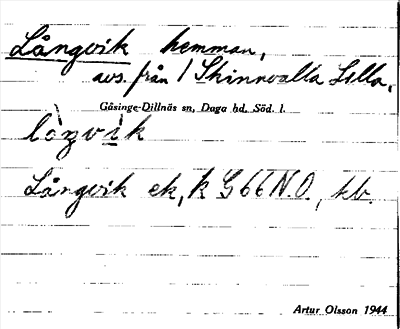 Långvik hemman,
avs. från 1 Skinnvalla Lilla.
Gåsinge-Dillnäs sn, Daga hd, Söd. l.
lòŋvik
Långvik ek, k G66N.O., kb.
Artur Olsson 1944